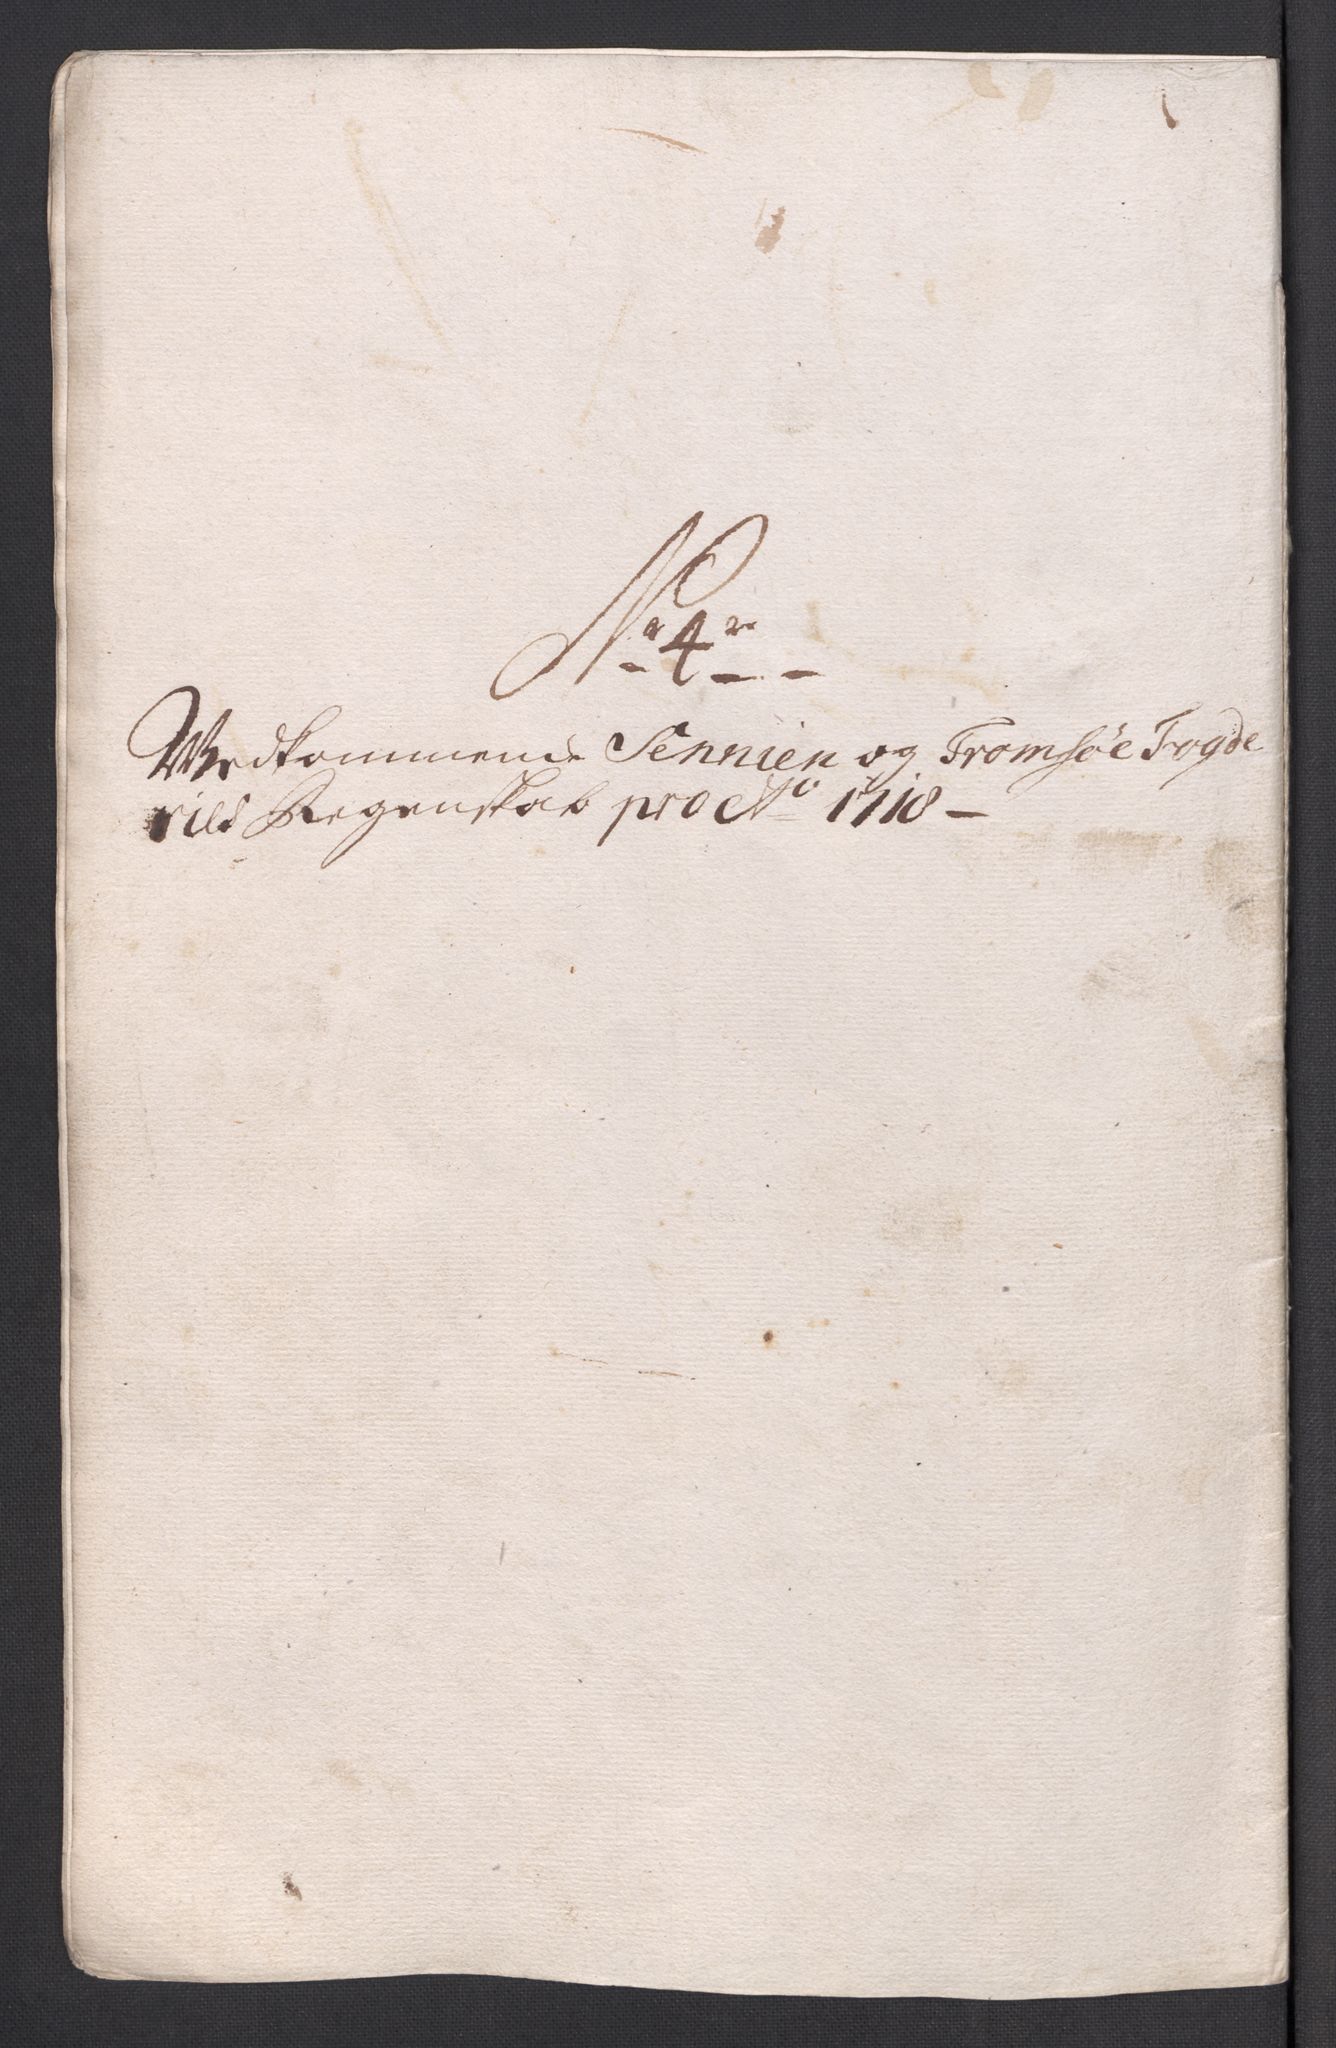 Nr 4re
Wedkommende Sennien og Tromsøe Fogde
riids Regenskab pro Ao 1718